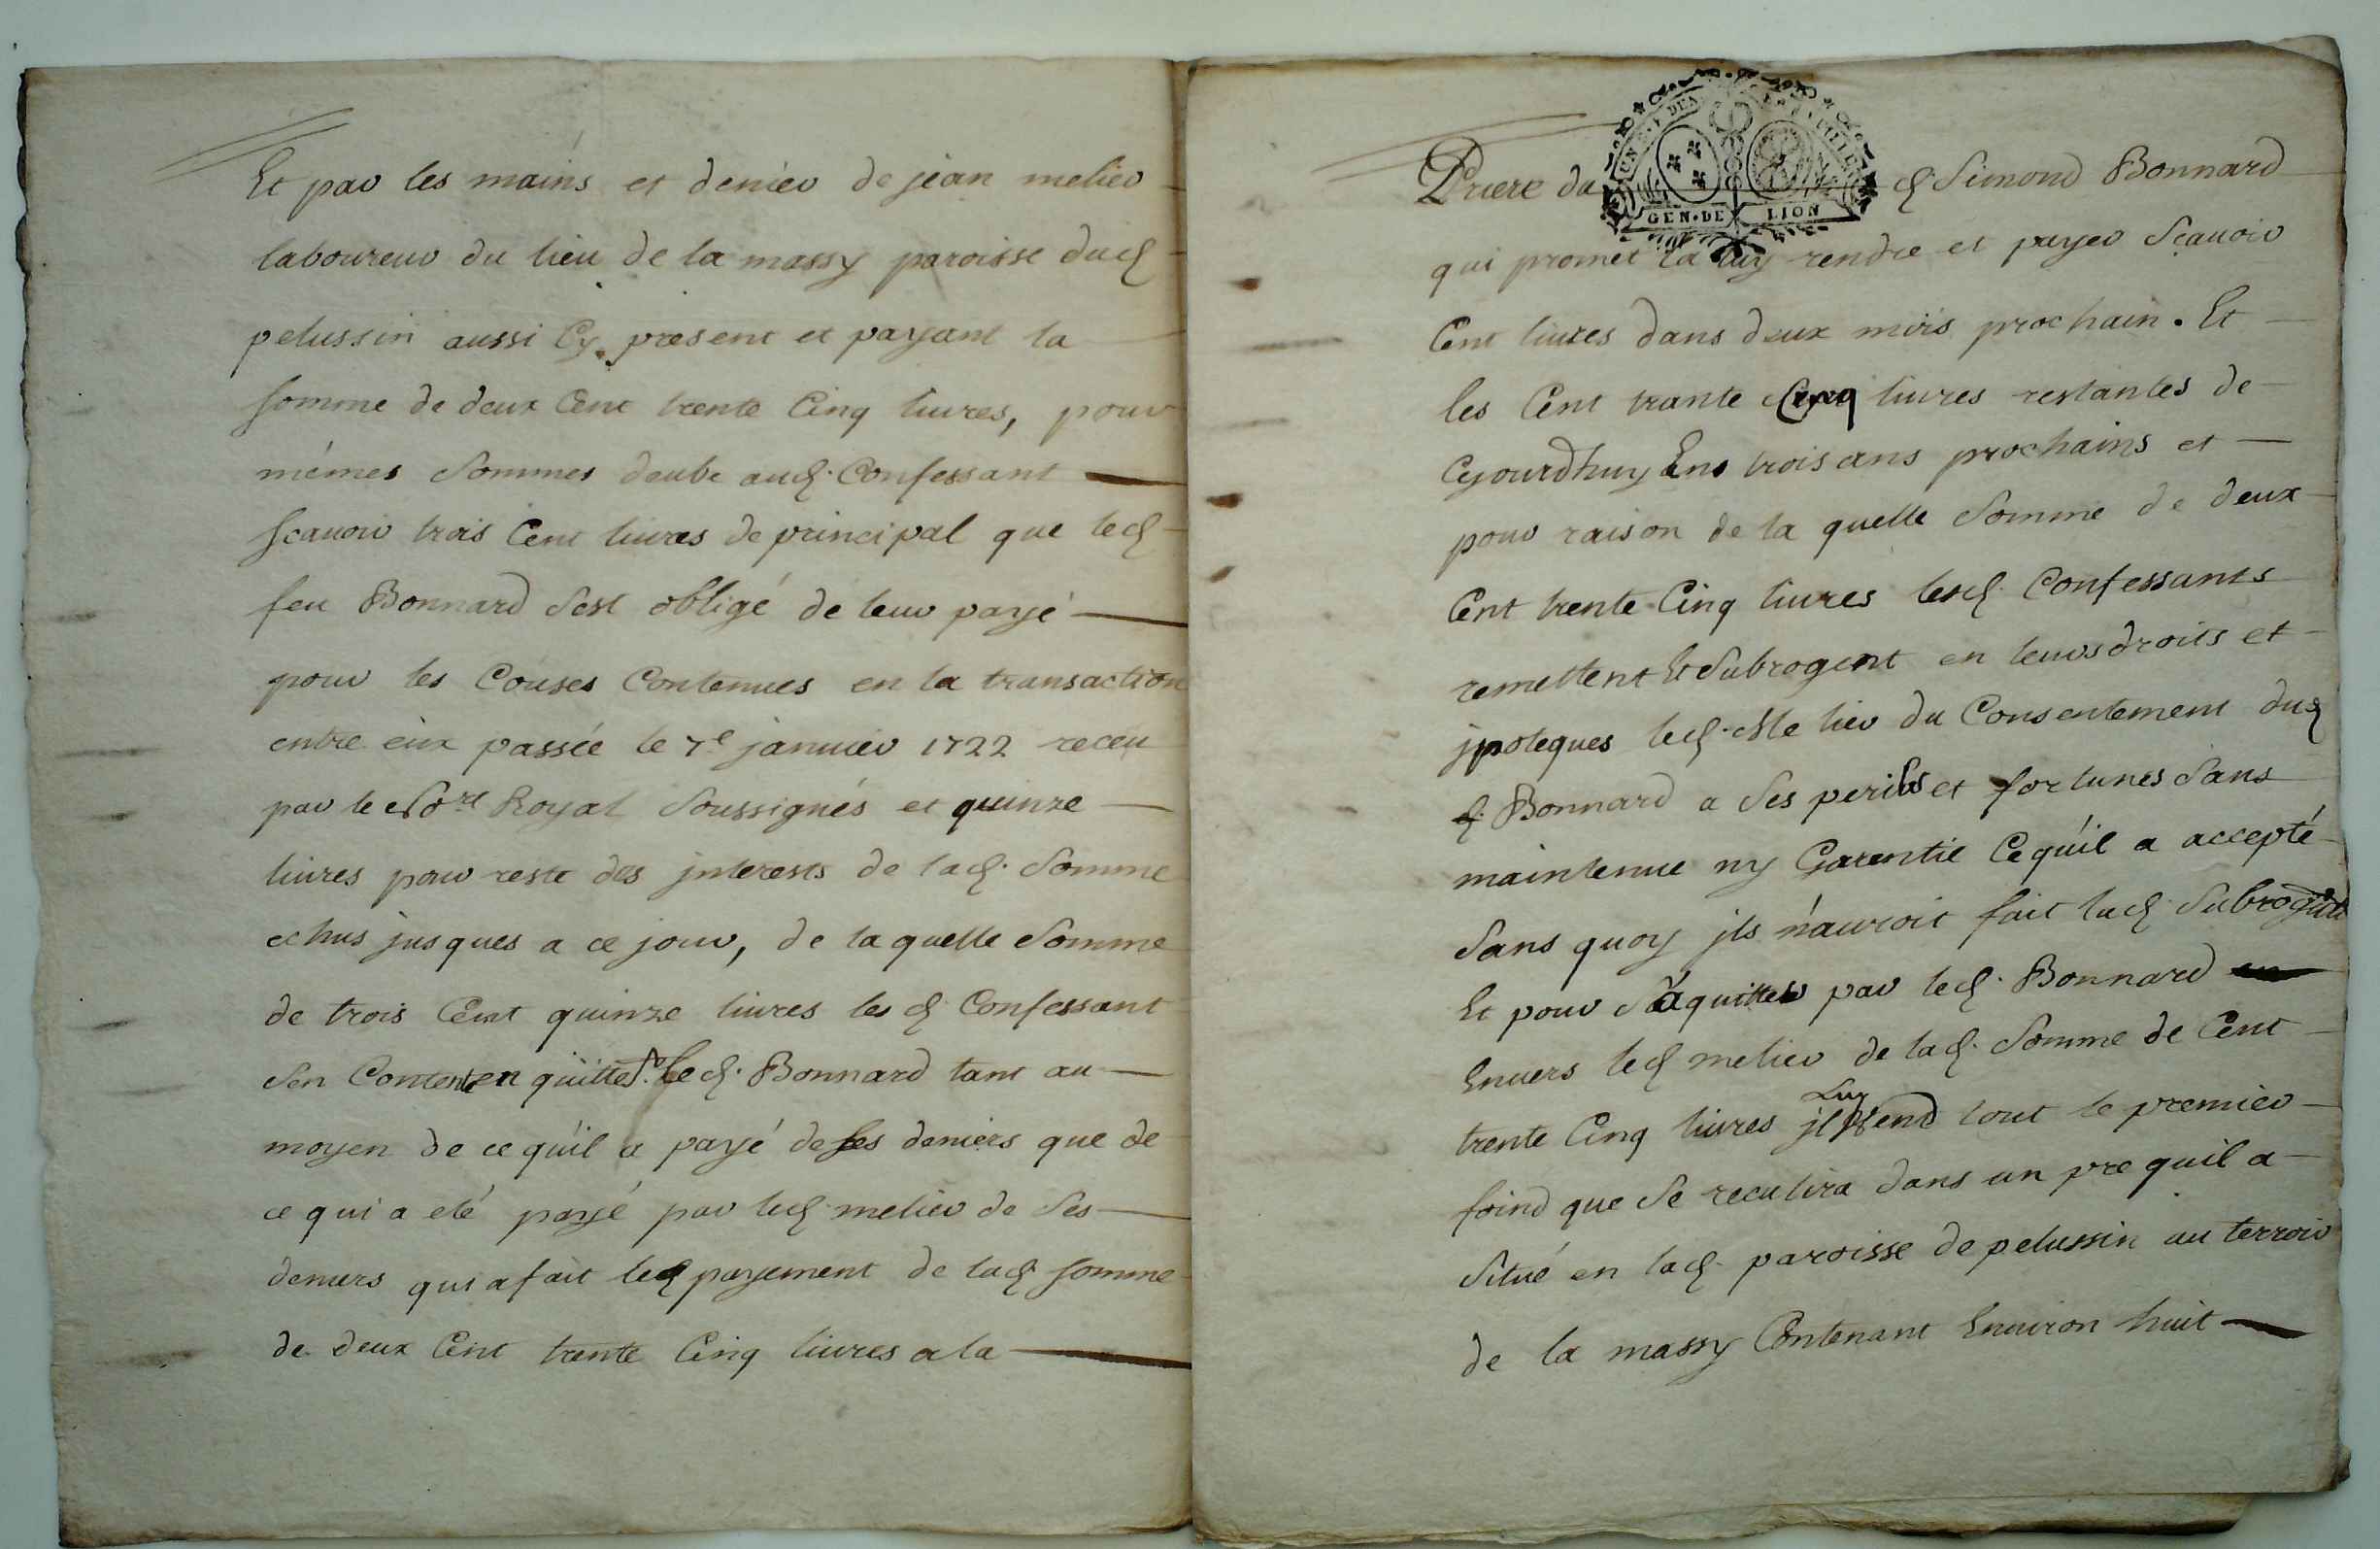 Et par les mains et denier de jean melier
laboureur du lieu de la massy paroisse dud
pelussin aussi Cy present et payant la
somme de deux Cent trente Cinq liures, pour
mémes Sommes deube aud. Confessant
scauoir trois Cent liures de principal que led
feu Bonnard sest obligé de leur payé
pour les Couses Contenues en la transaction
entre eux passée le 7e januier 1722 receu
par le Nore Royal Soussignés et quinze
liures pour reste des jnterests de lad. Somme
echus jusques a ce jour, de la quelle Somme
de trois Cent quinze liures les d Confessant
sen Content en quitte led. Bonnard tant au
moyen de ce qu'il a payé de ses deniers que de
ce qui a eté payé par led melier de Ses
deniers qui a fait led payement de lad somme
de deux Cent trente Cinq liures a la
Priere du d Simond Bonnard
GEN. DE LION
qui promet la luy rendre et payer Scauoir
Cent liures dans deux mois prochain. Et
les Cent trante Cinq liures restantes de
Cejourdhuy Ens trois ans prochains et
pour raison de la quelle Somme de deux
Cent trente Cinq liures lesd. Confessants
remettent Et Subrogent en leurs droits et
jpoteques led. Melier du Consentement dud
d. Bonnard a Ses perils et fortunes Sans
maintenue ny Garentie Ce qu'il a accepté
Sans quoy jls n'auroit fait lad Subrogate
Et pour S'aquitter par led. Bonnard
Enuers led melier de lad. Somme de Cent
trente Cinq liures jl Luy Vend tout le premier
foind que Se reculira dans un pre quil a
Situé en lad. paroisse de pelussin au terroir
de la massy Contenant Enuiron huit